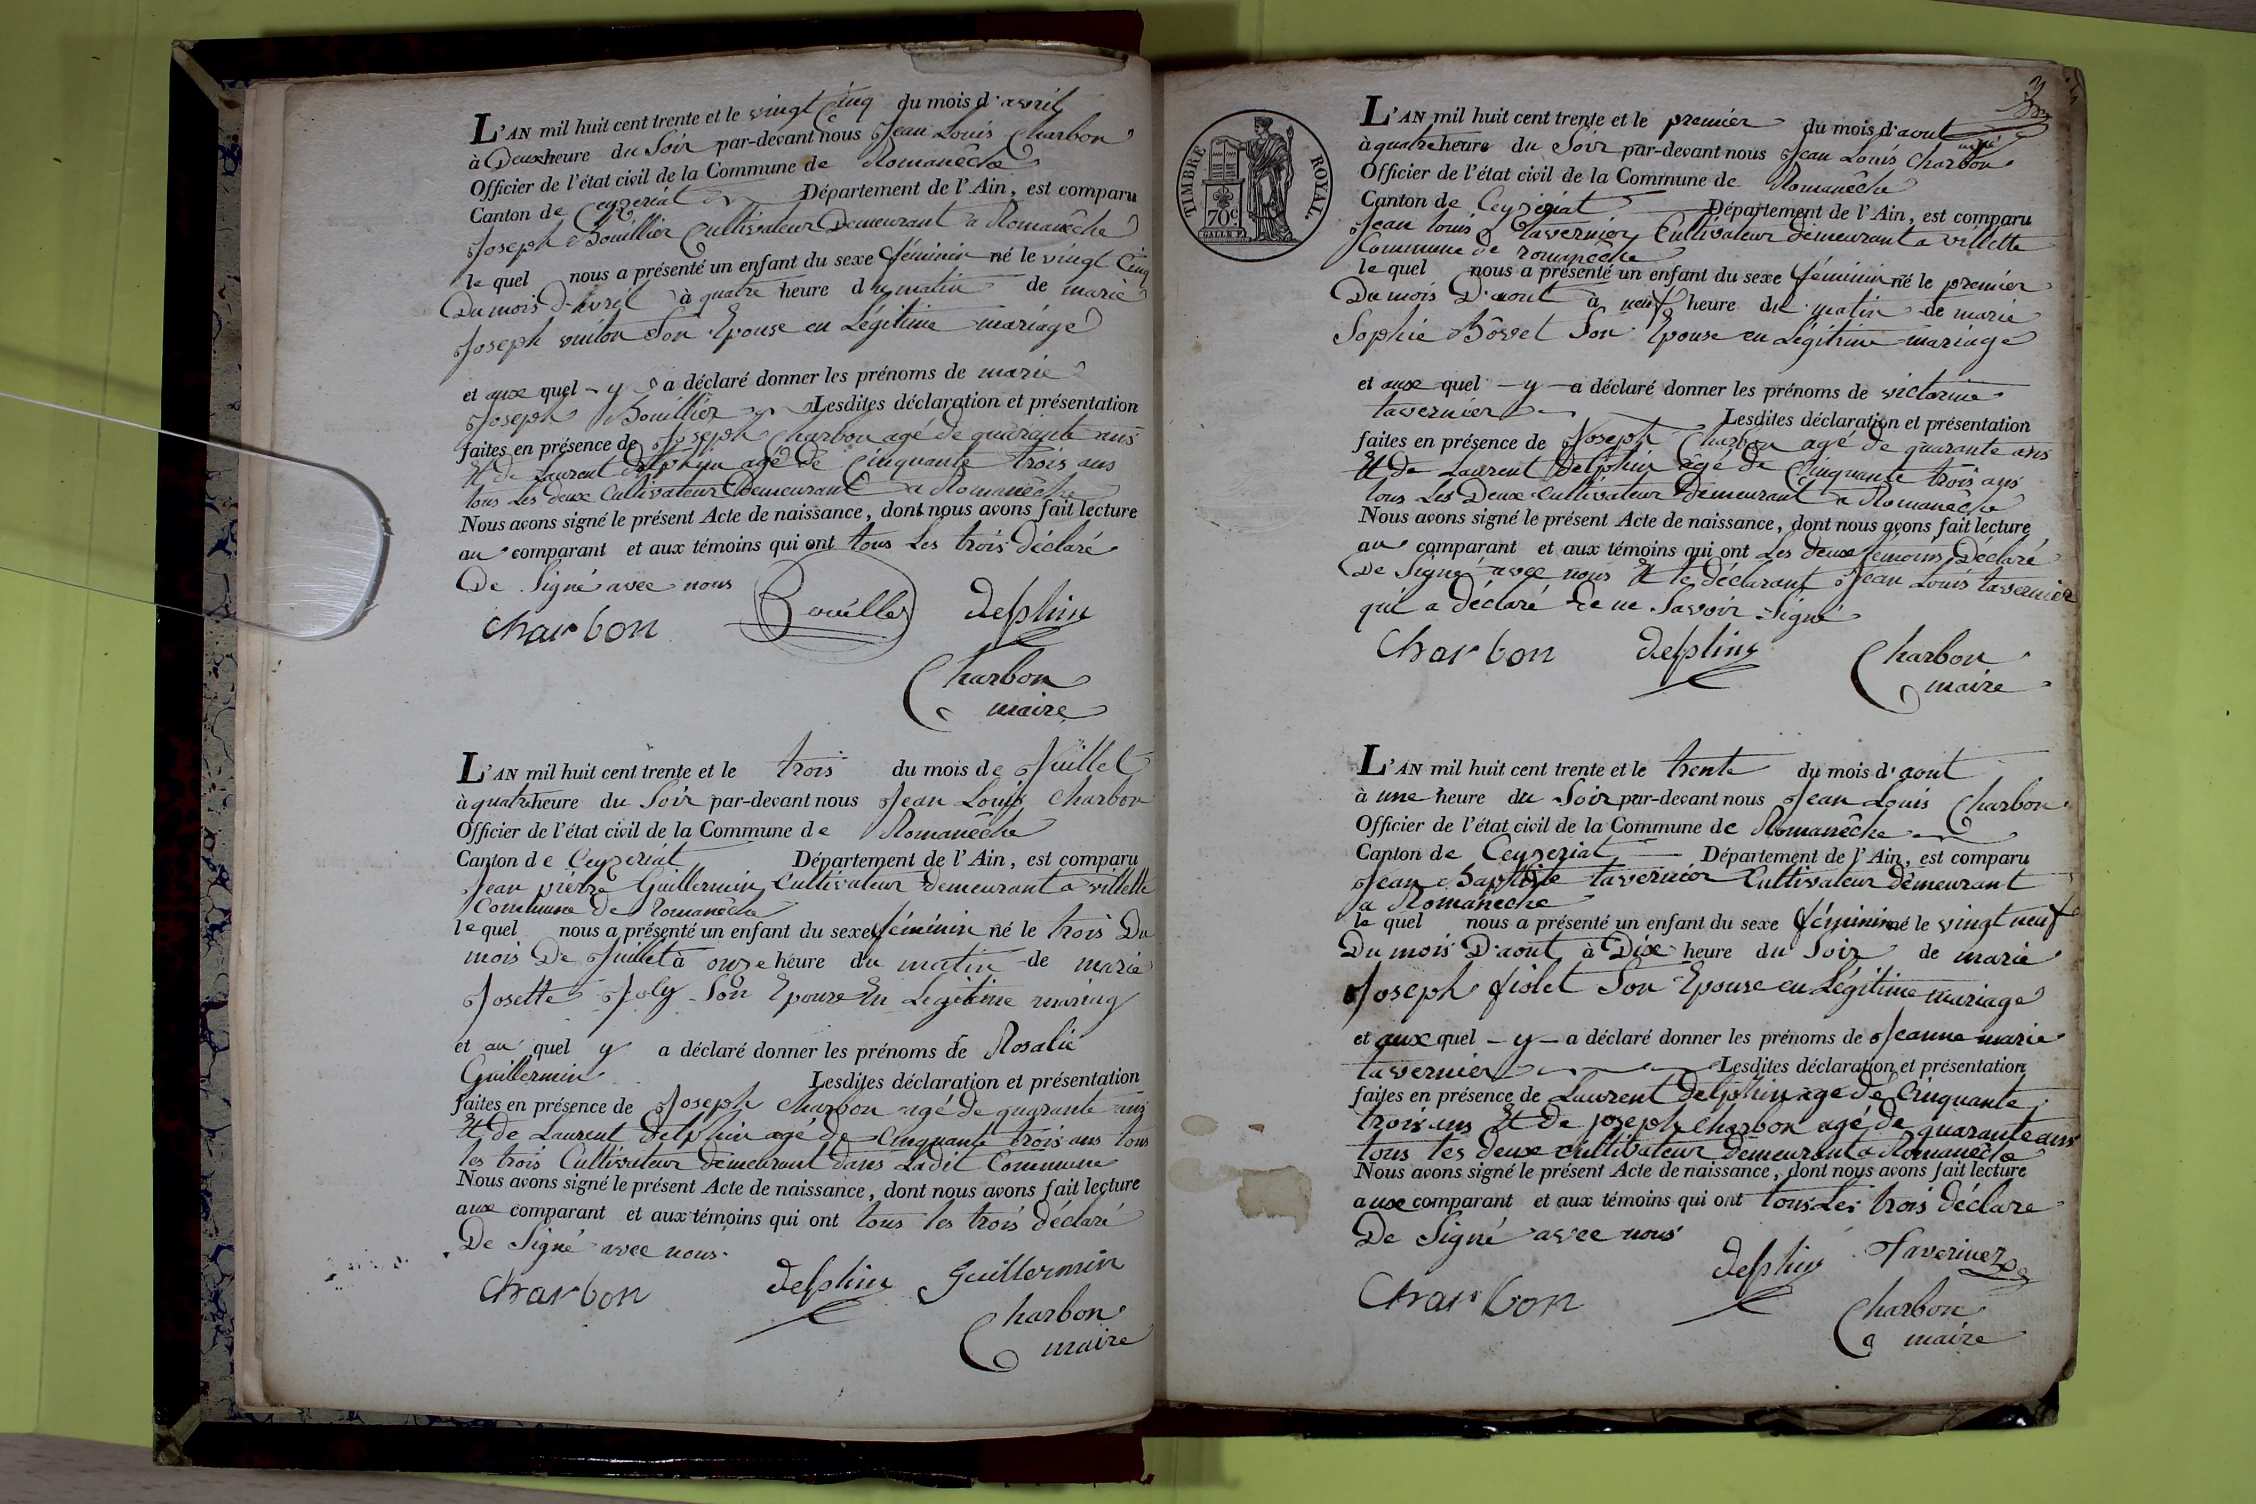 L'AN mil huit cent trente et le vingt Cinq du mois d'avril
à Deux heure du Soir par-devant nous Jean Louis Charbon
Officier de l'état civil de la Commune de Romanêche
Canton de Ceyzeriat Département de l'Ain, est comparu
Joseph Bouillier Cultivateur Demeurant a Romanêche
le quel nous a présenté un enfant du sexe féminin né le vingt Cinq
Du mois D'avril à quatre heure du matin de marie
Joseph Son Epouse en Légitime mariage
et aux quel y a déclaré donner les prénoms de marie
Joseph Bouillier Lesdites déclaration et présentation
faites en présence de Joseph Charbon agé de quarante ans
Et de Laurent Delphin agé de Cinquante trois ans
tous Les deux Cultivateur Demeurant a Romanêche
Nous avons signé le présent Acte de naissance, dont nous avons fait lecture
au comparant et aux témoins qui ont tous Les trois Déclaré
De Signé avec nous
Charbon Bouiller delphin
Charbon
maire
L'AN mil huit cent trente et le trois du mois de Juillet
à quatre heure du Soir par-devant nous Jean Louis Charbon
Officier de l'état civil de la Commune de Romanêche
Canton de Ceyzeriat Département de l'Ain, est comparu
Jean pierre Guillermin Cultivateur Demeurant a villette
Commune de Romanêche
le quel nous a présenté un enfant du sexe féminin né le trois Du
mois De Juillet à onze heure du matin de marie
Josette Joly Son Epouse En Legitime mariag
et au quel y a déclaré donner les prénoms de Rosalie
Guillermin Lesdites déclaration et présentation
faites en présence de Joseph Charbon agé de quarante ans
Et de Laurent Delphin agé de Cinquante trois ans tous
les trois Cultivateur Demeurant dans Ladit Commune
Nous avons signé le présent Acte de naissance, dont nous avons fait lecture
aux comparant et aux témoins qui ont tous les trois déclaré
De Signé avec nous
Charbon delphin guillermin
Charbon
maire
3
TIMBRE ROYAL.
70c.
L'AN mil huit cent trente et le premier du mois d'aout
à quatre heure du Soir par-devant nous Jean Louis Charbon
Officier de l'état civil de la Commune de Romanêche
Canton de Ceyzeriat Département de l'Ain, est comparu
Jean louis tavernier Cultivateur demeurant a villette
Commune de romanêche
le quel nous a présenté un enfant du sexe féminin né le premier
Du mois D'aout à neuf heure du matin de marie
Sophie Bôvet Son Epouse en Légitime mariage
et aux quel y a déclaré donner les prénoms de victorine
tavernier Lesdites déclaration et présentation
faites en présence de Joseph Charbon agé de quarante ans
Et de Laurent Delphin agé de Cinquante trois ans
tous Les Deux Cultivateur Demeurant a Romanêche
Nous avons signé le présent Acte de naissance, dont nous avons fait lecture
au comparant et aux témoins qui ont Les deux temoins Déclaré
De Signé avec nous Et le déclarant Jean Louis tavernier
qui a déclaré de ne Savoir Signé
Charbon delphin Charbon
maire
L'AN mil huit cent trente et le trente du mois d'aout
à une heure du Soir par-devant nous Jean Louis Charbon
Officier de l'état civil de la Commune de Romanêche
Canton de Ceyzeriat Département de l'Ain, est comparu
Jean Baptiste tavernier Cultivateur Demeurant
a Romaneche
le quel nous a présenté un enfant du sexe féminin né le vingt neuf
Du mois D'aout à Dix heure du Soir de marie
Joseph fiolet Son Epouse en Légitime mariage
et aux quel y a déclaré donner les prénoms de Jeanne marie
tavernier Lesdites déclaration et présentation
faites en présence de Laurent Delphin age de Cinquante
trois ans Et de joseph Charbon agé de quarante ans
tous les deux cultivateur Demeurant a Romanêche
Nous avons signé le présent Acte de naissance, dont nous avons fait lecture
aux comparant et aux témoins qui ont tous Les trois déclare
De Signé avec nous
Charbon delphin Taverniez
Charbon
maire